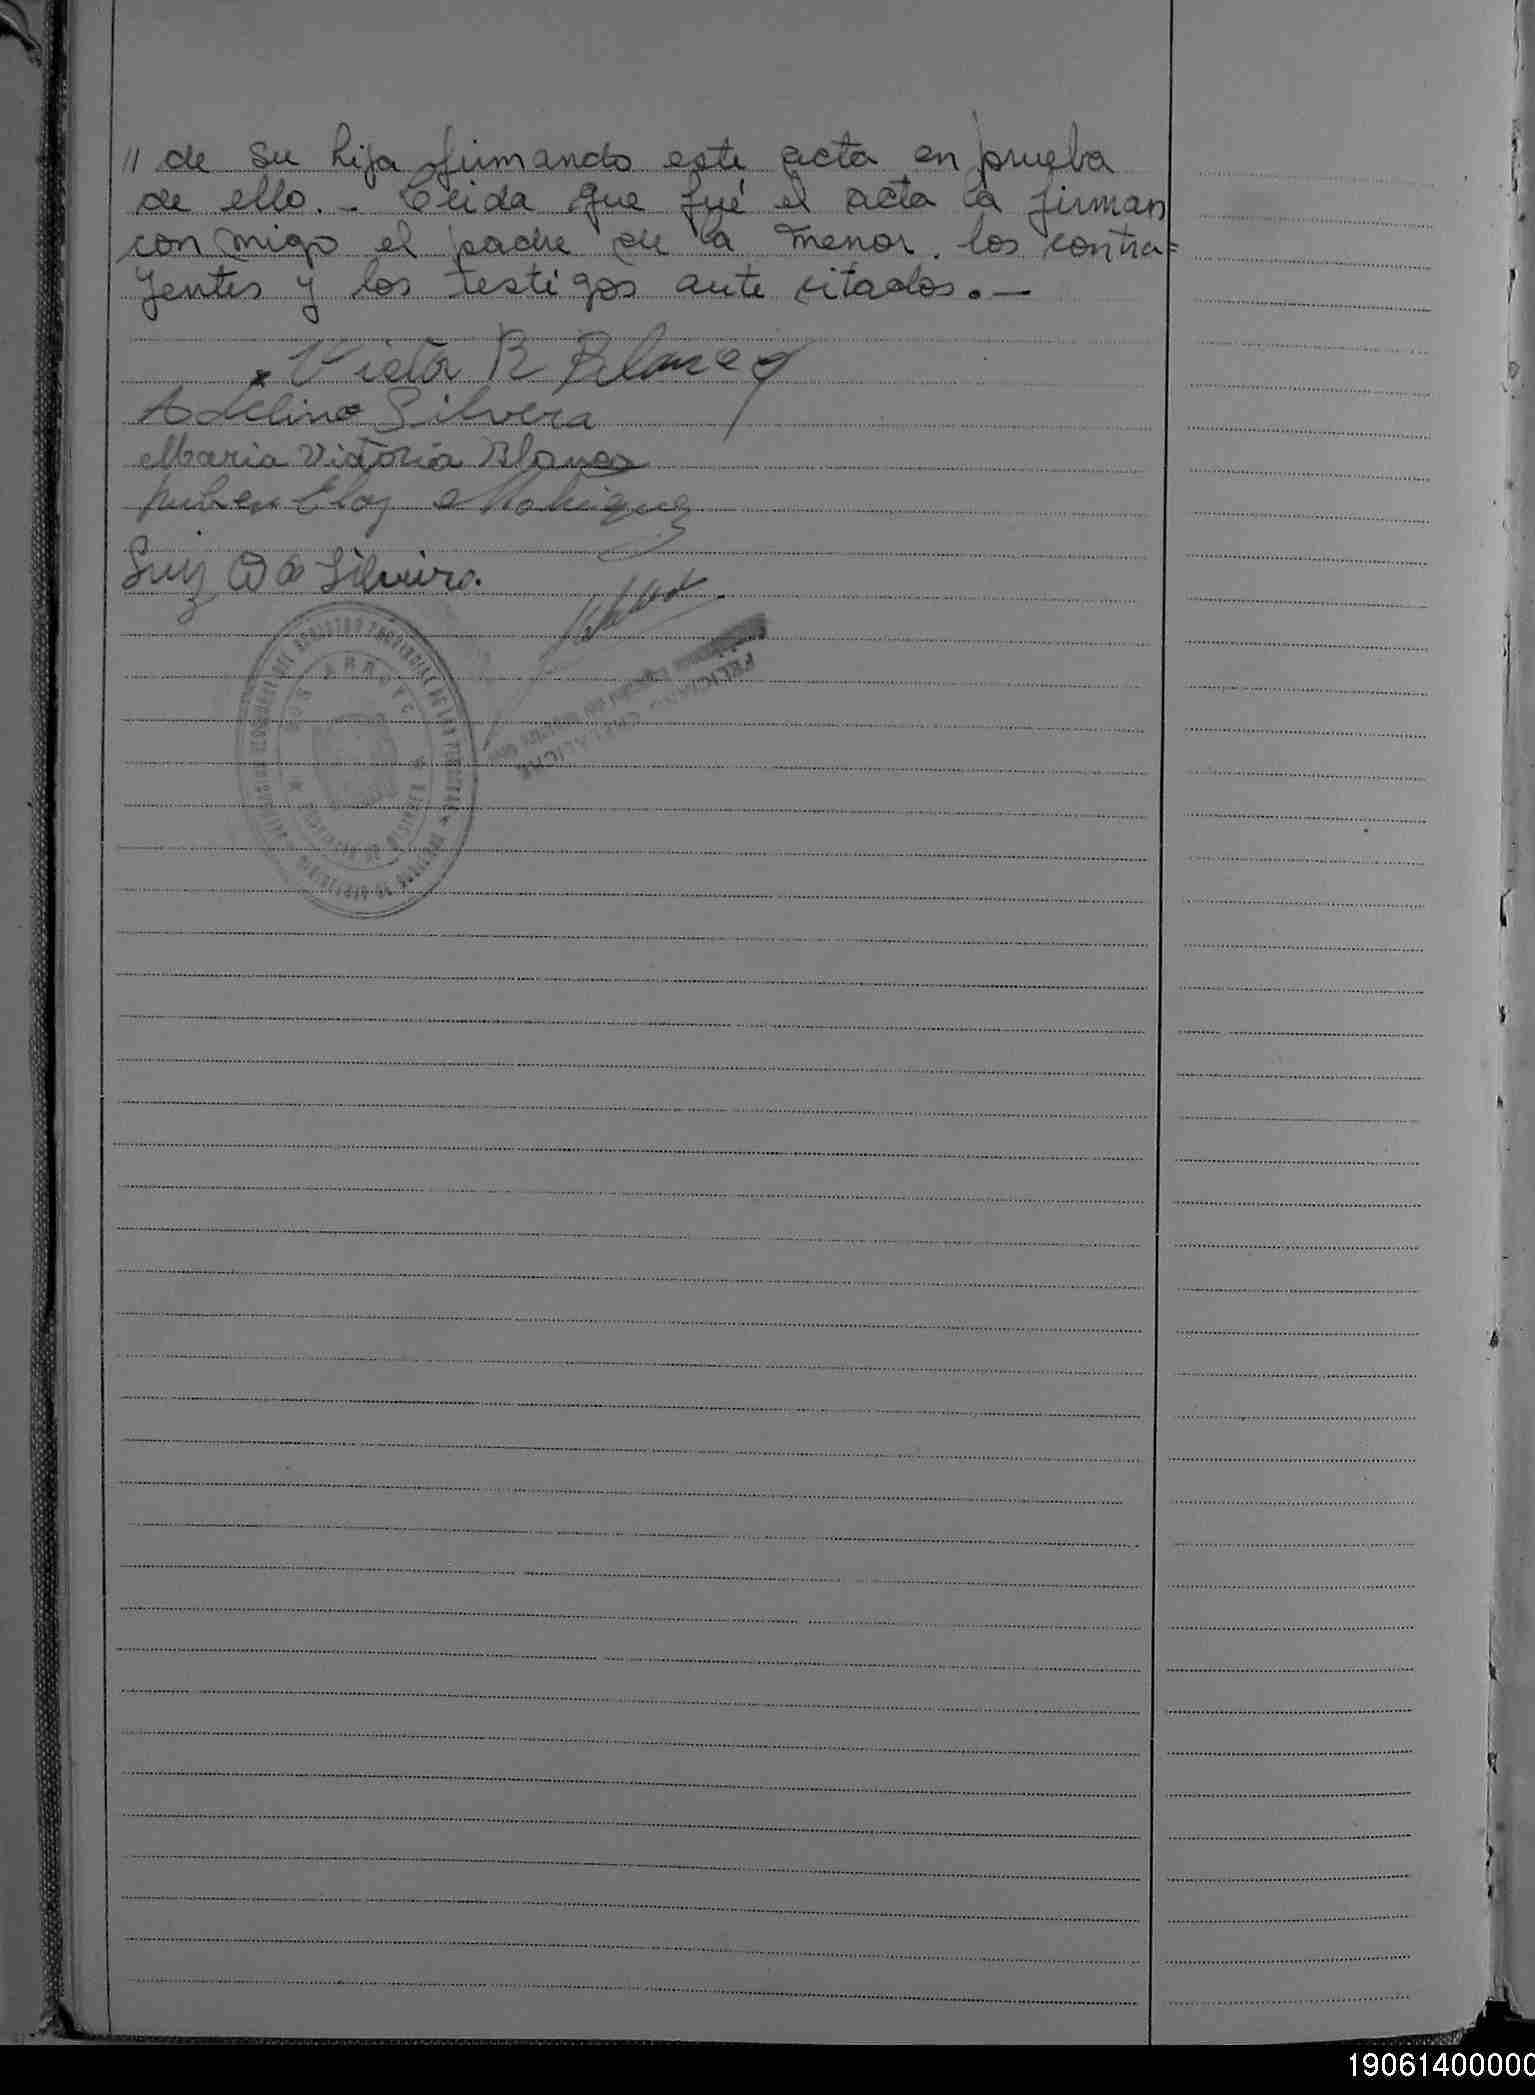 // de su hija firmando este acta en prueba
de ello. - Leida que fué el acta la firman
con migo el padre de la menor, los contra=
yentes y los testigos ante citados. —
Victor R Blanco
Adelino Silvera
Maria Victoria Blanco
Ruben Eloy
Luiz Da Silveira.
DOS ARROYOS
19061400000